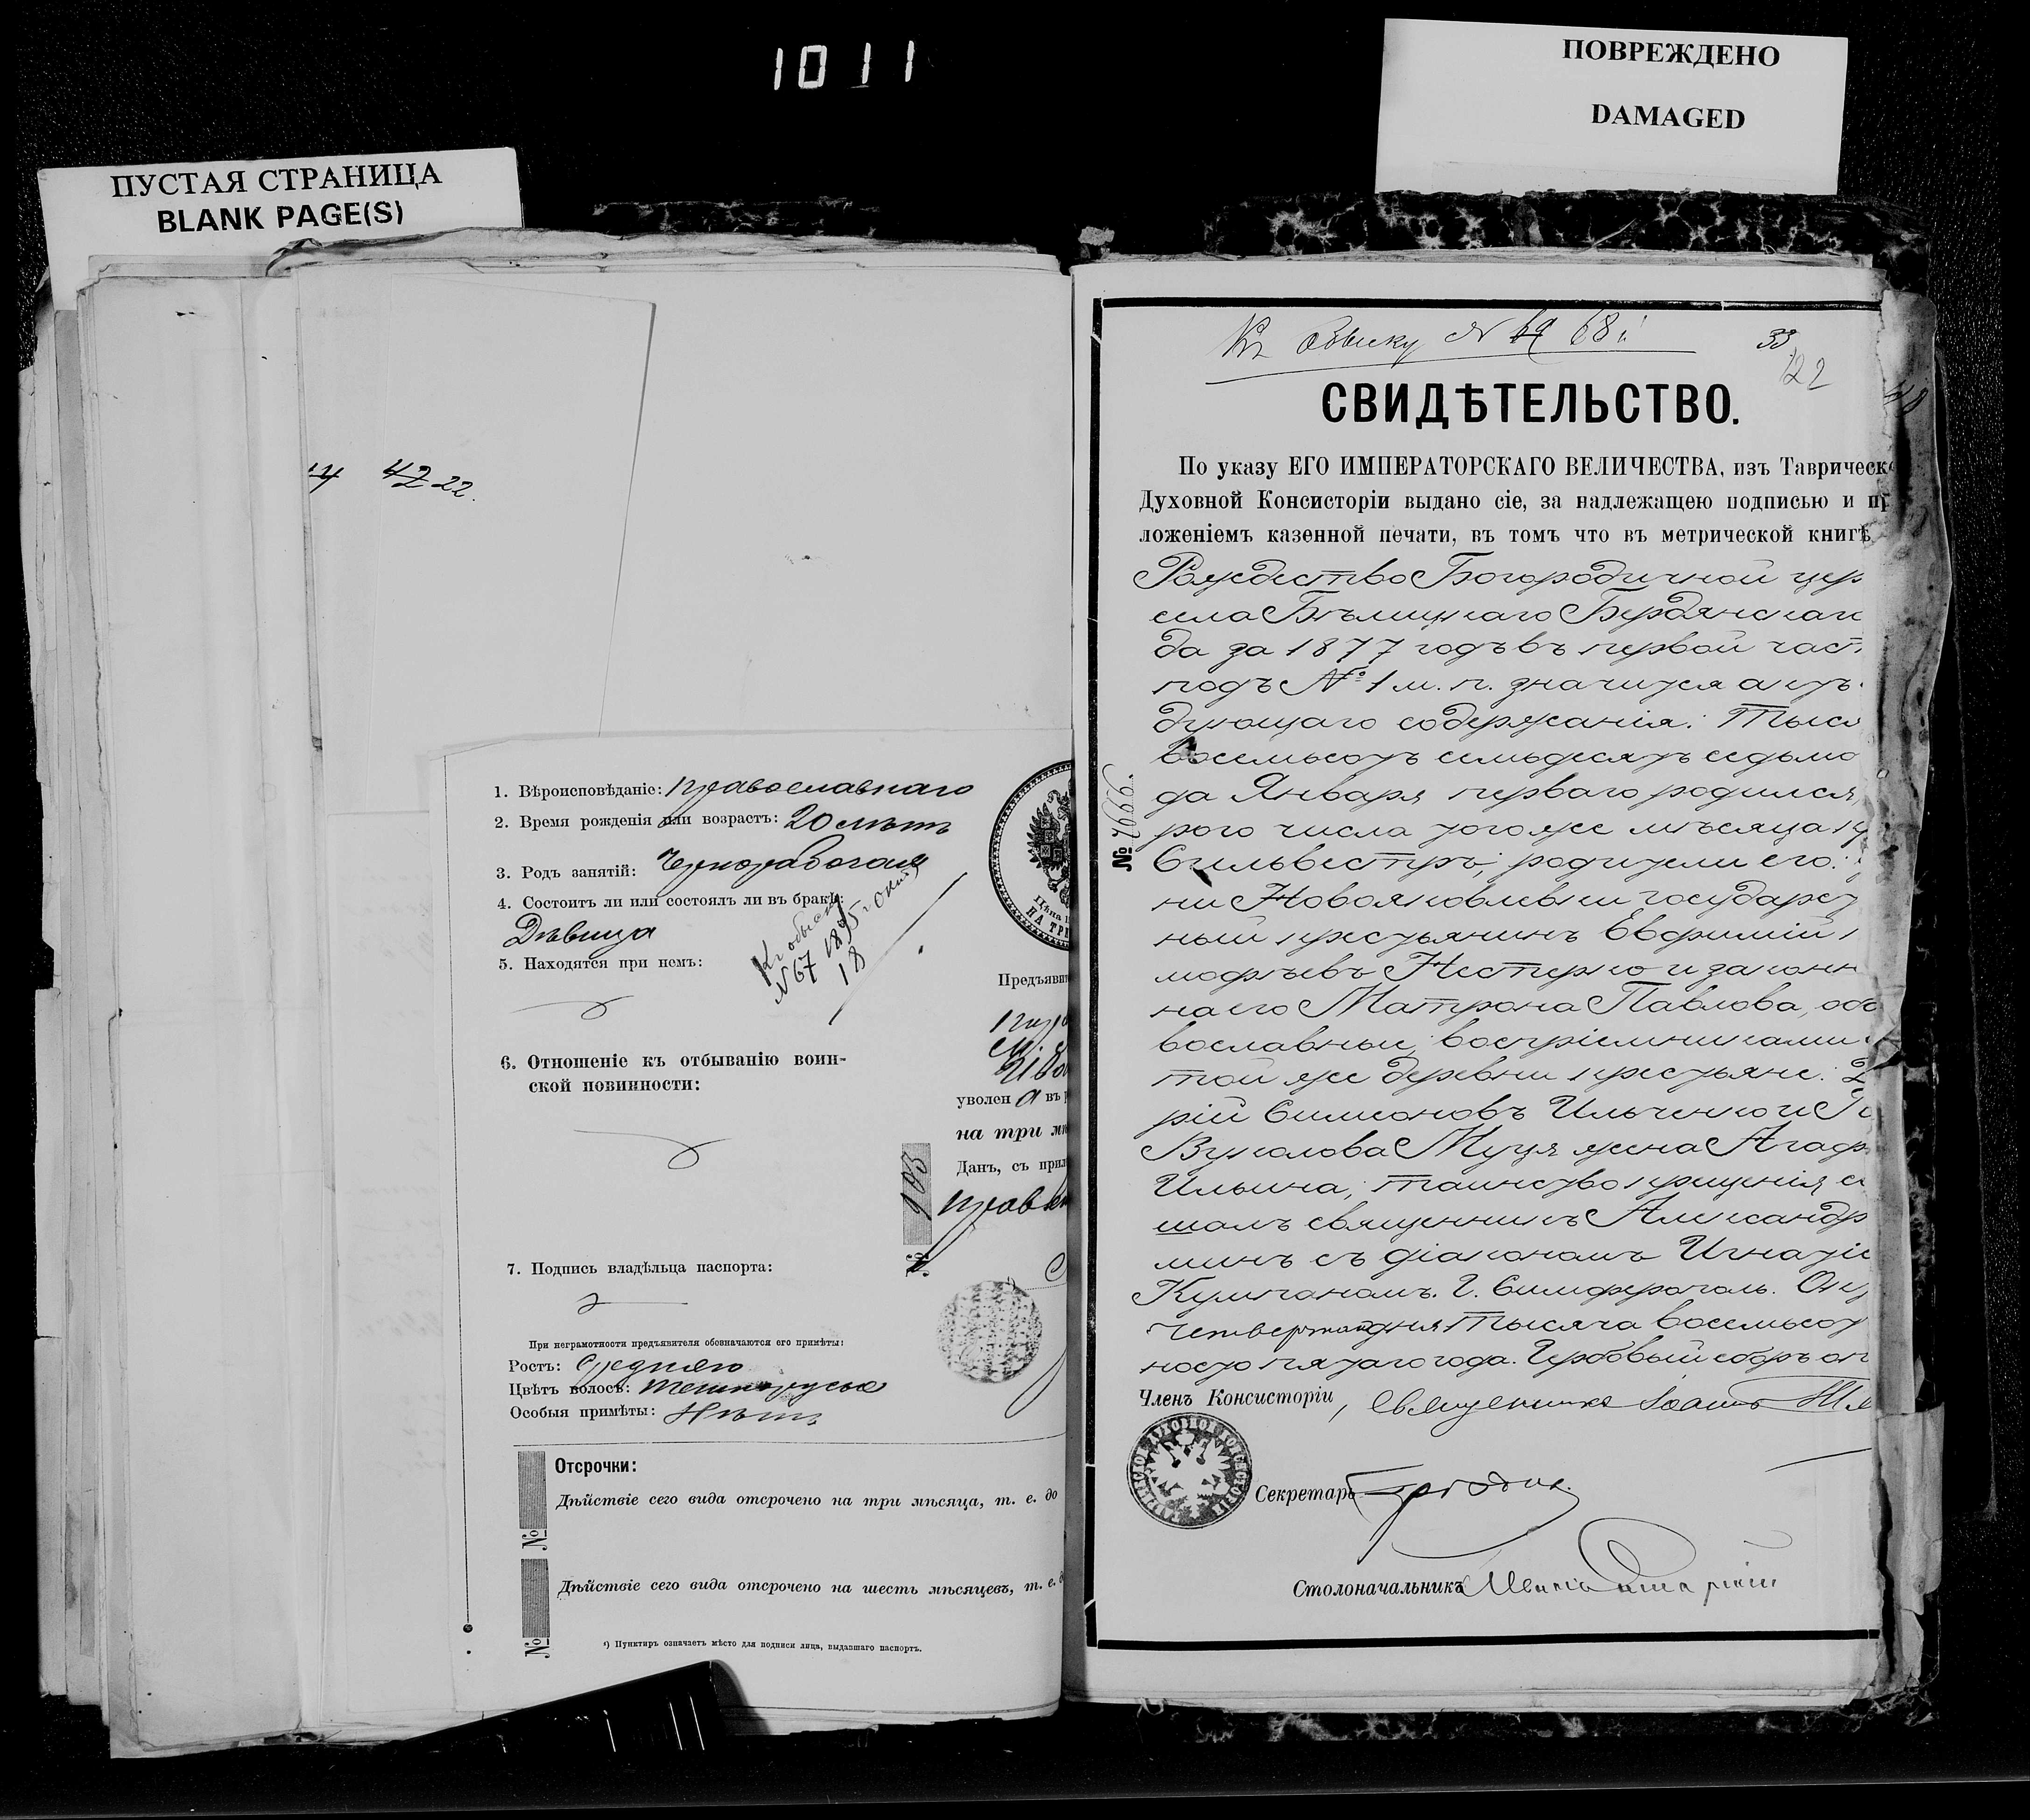 1011
ПОВРЕЖДЕНО
DAMAGED
ПУСТАЯ СТРАНИЦА
BLANK PAGE(S)
42 22.
1. Вѣроисповѣданіе: православнаго
2. Время рожденія или возрастъ: 20 лѣтъ
3. Родъ занятій: Чернорабочая
4. Состоитъ ли или состоялъ ли въ бракѣ:
Дѣвица
5. Находятся при немъ:
Къ обыску
№ 67 1895 г.
18
6. Отношеніе къ отбыванію воин-
ской повинности:
7. Подпись владѣльца паспорта:
При неграмотности предъявителя обозначаются его примѣты:
Ростъ: Средняго
Цвѣтъ волосъ: темнорусые
Особыя примѣты: Нѣтъ
Отсрочки:
№
Дѣйствіе сего вида отсрочено на три мѣсяца, т. е. до
№
Дѣйствіе сего вида отсрочено на шесть мѣсяцевъ, т. е.
¹) Пунктиръ означаетъ мѣсто для подписи лица, выдавшаго паспортъ.
Цѣна
НА ТРИ
Предъяви
уволен а въ
на три мѣ
Данъ, съ прил
№ 903
Къ обыску № 68й
33
122
СВИДѢТЕЛЬСТВО.
По указу ЕГО ИМПЕРАТОРСКАГО ВЕЛИЧЕСТВА, изъ Таврическо
Духовной Консисторіи выдано сіе, за надлежащею подписью и пр
ложеніемъ казенной печати, въ томъ что въ метрической книгѣ
Рождество Богородичной цер
села Бѣлицкаго Бердянскаго
да за 1877 годъ въ первой част
подъ № 1 м. п. значится актъ
дующаго содержанія: Тыся
восемьсотъ семьдесятъ седьмо
да Января перваго родился,
рого числа того же мѣсяца кр
Сильвестръ; родители его:
ни Новояковлевки государст
ный крестьянинъ Евфимій
мофѣевъ Нестерко и законн
на его Матрона Павлова, оба
вославные; воспріемниками
той же деревни крестьяне:
рій Симеоновъ Ильченко и
Вуколова Муця жена Агаф
Ильина; таинство крещенія со
шалъ священникъ Александр
минъ съ діакономъ Игнатіе
Г. Симферополь. Окт
четвертаго дня тысяча восемьсот
носто пятаго года. Гербовый сборъ оп
Членъ Консисторіи, священникъ Іоаннъ
Секретарь
Столоначальникъ
№ 7666.